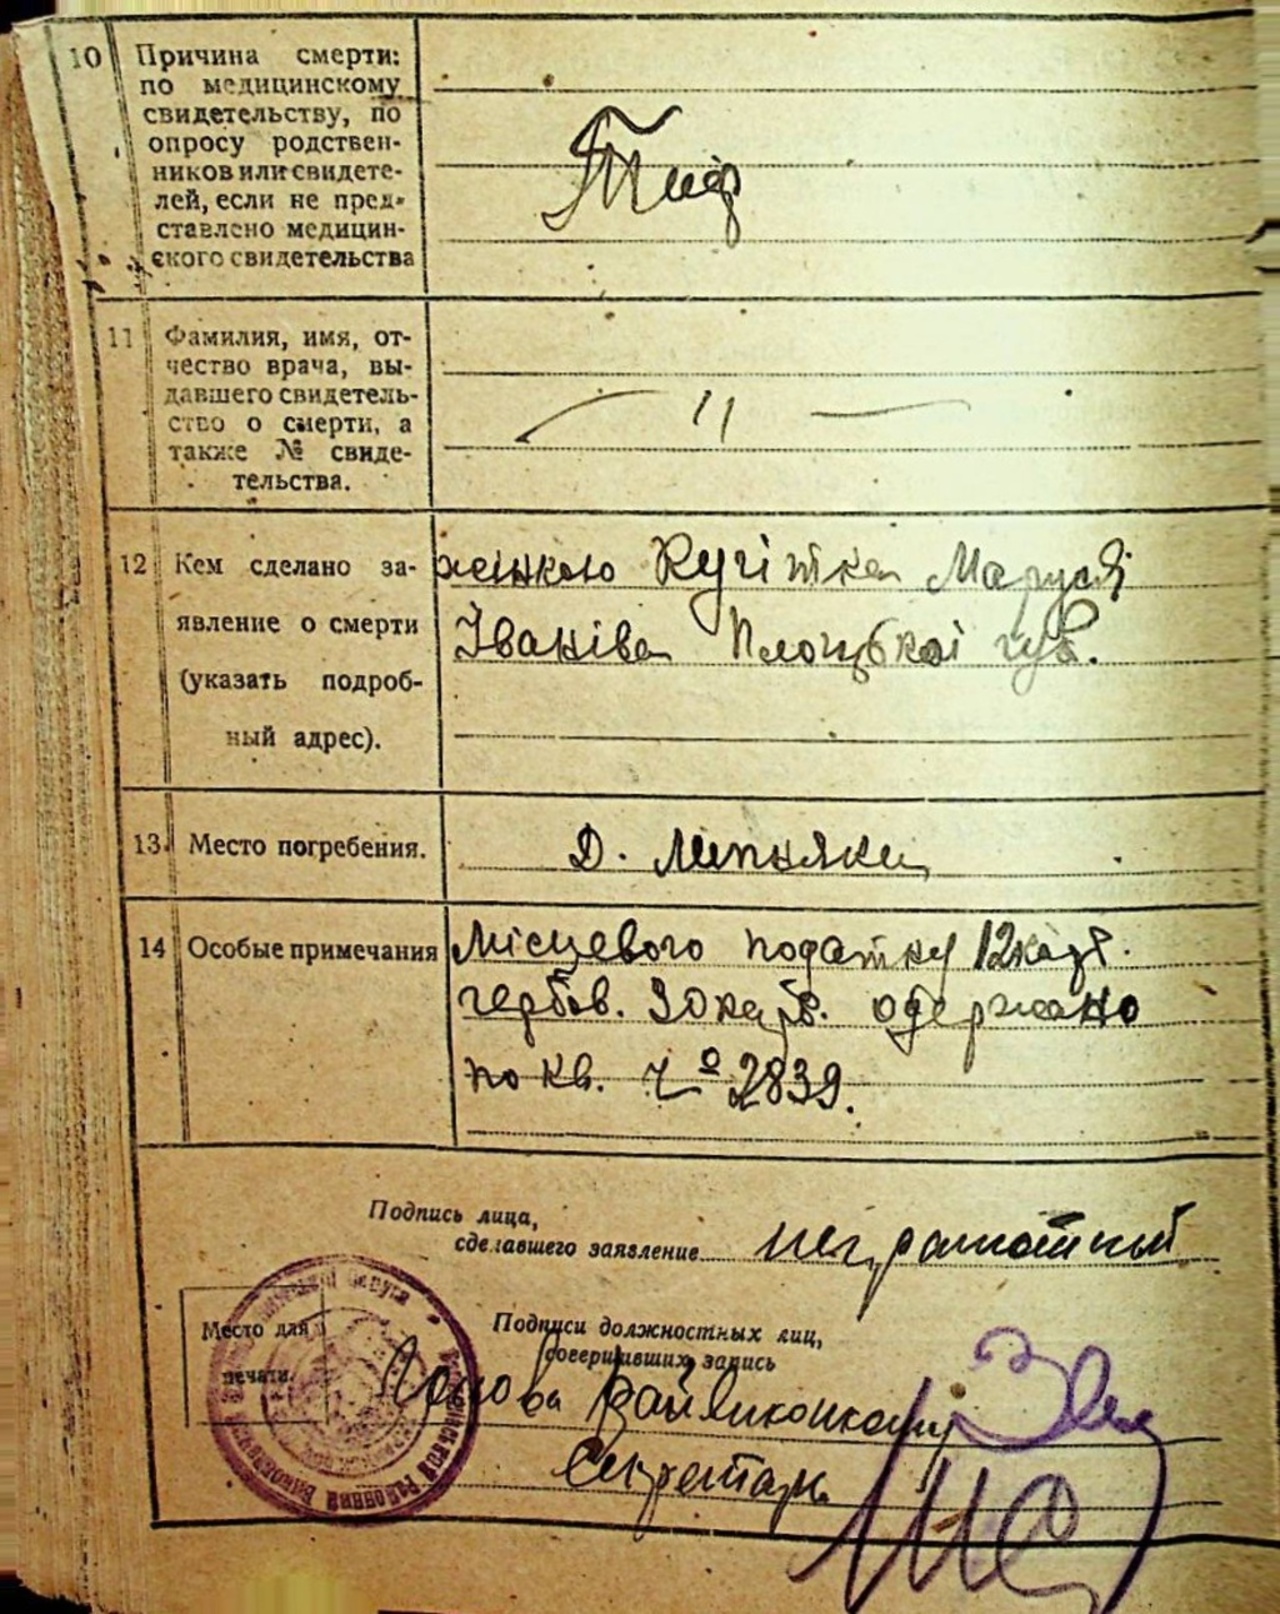 10 Причина смерти:
по медицинскому
свидетельству, по
опросу родствен-
ников или свидете-
лей, если не пред-
ставлено медицин-
ского свидетельства
Тиф
11 Фамилия, имя, от-
чество врача, вы-
давшего свидетель-
ство о смерти, а
также № свиде-
тельства.
— 11 —
12 Кем сделано за-
явление о смерти
(указать подроб-
ный адрес).
Маруся
Іваніва Плоцької губ.
13 Место погребения.
Д. Липняки
14 Особые примечания
Місцевого податку 12 карб.
гербов. 30 карб. одержано
по кв. ч° 2839.
Подпись лица,
сделавшего заявление неграмотный
Место для
печати
Подписи должностных лиц,
совершивших запись
Голова Райвиконкому
Секретарь